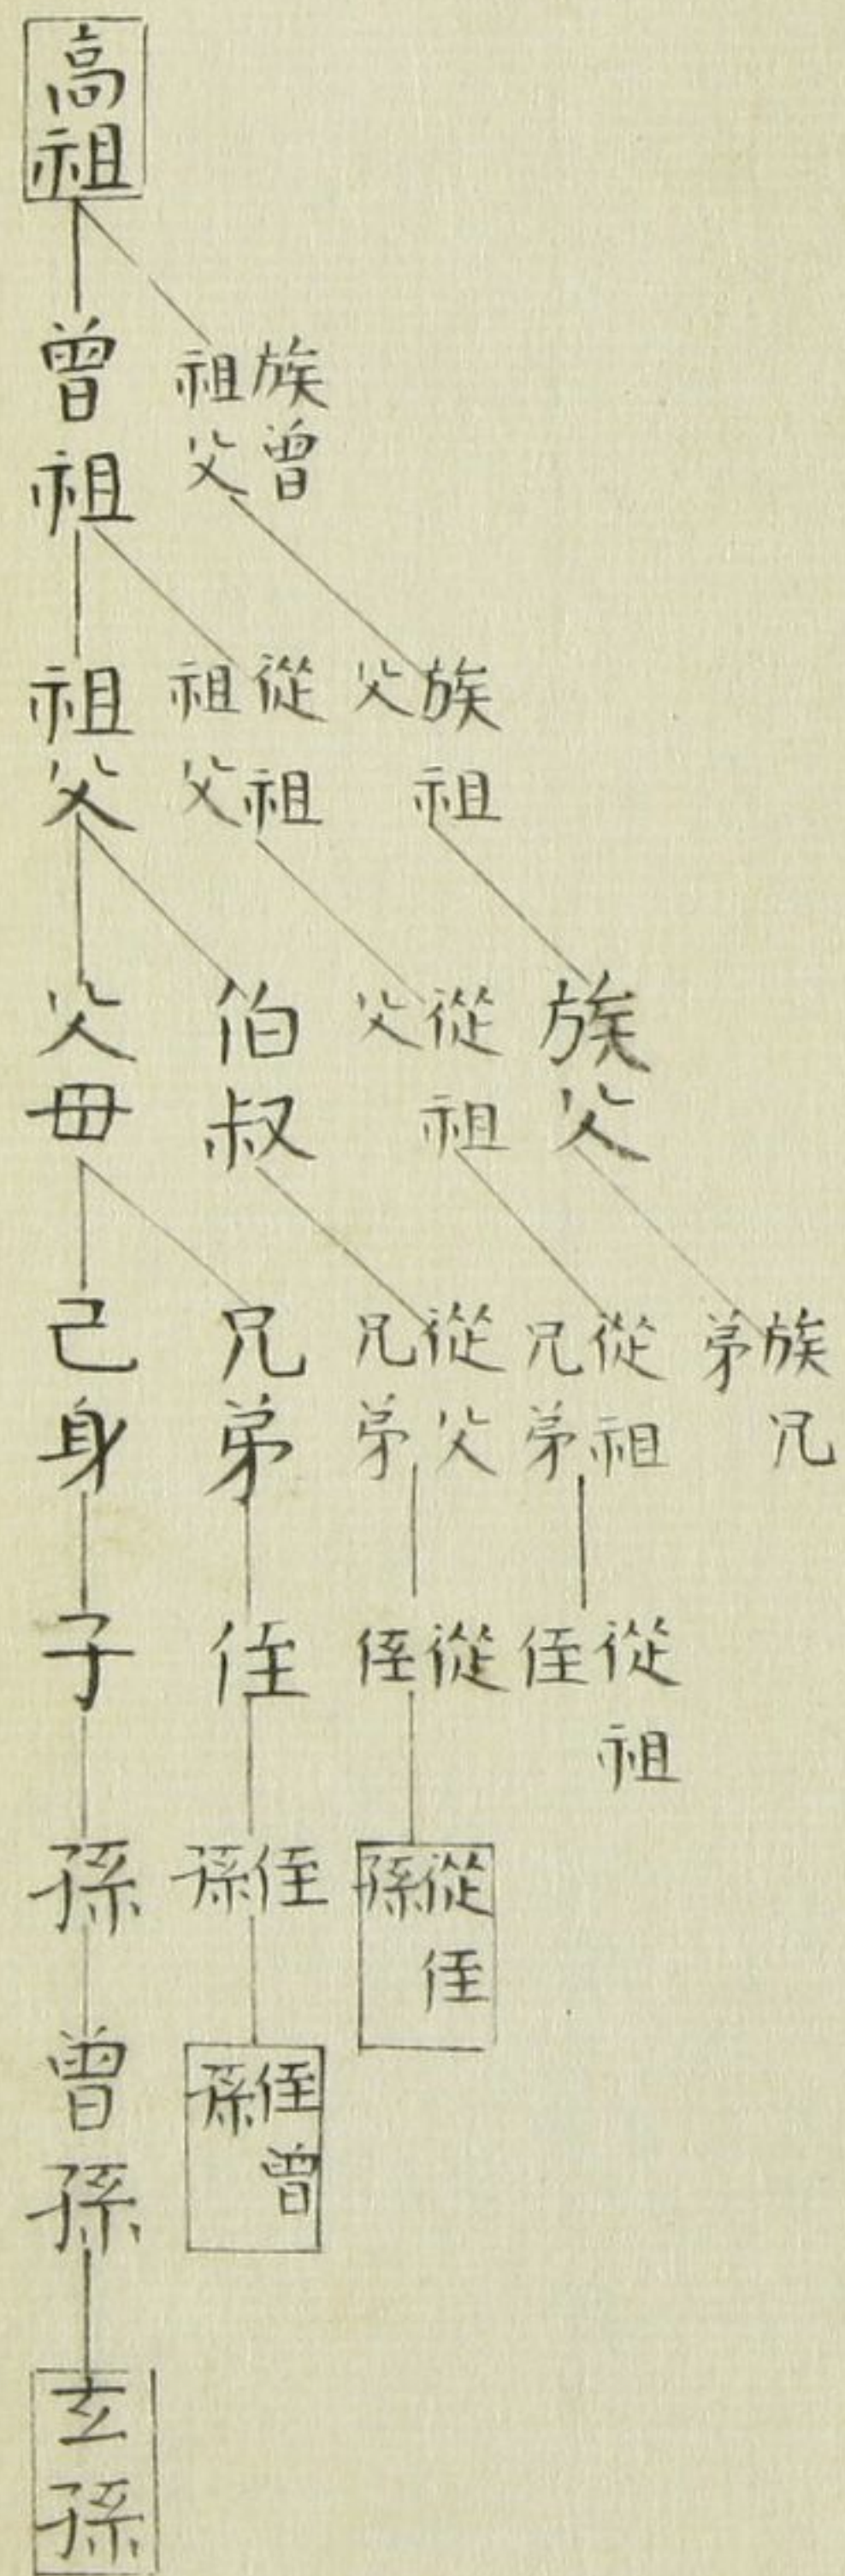 高祖
曾祖
族曾祖父
祖父
從祖祖父
族祖父
父母
伯叔
從祖父
族父
己身
兄弟
從父兄弟
從祖兄弟
族兄弟
子
侄
從侄
從祖侄
孫
侄孫
從侄孫
曾孫
侄曾孫
玄孫